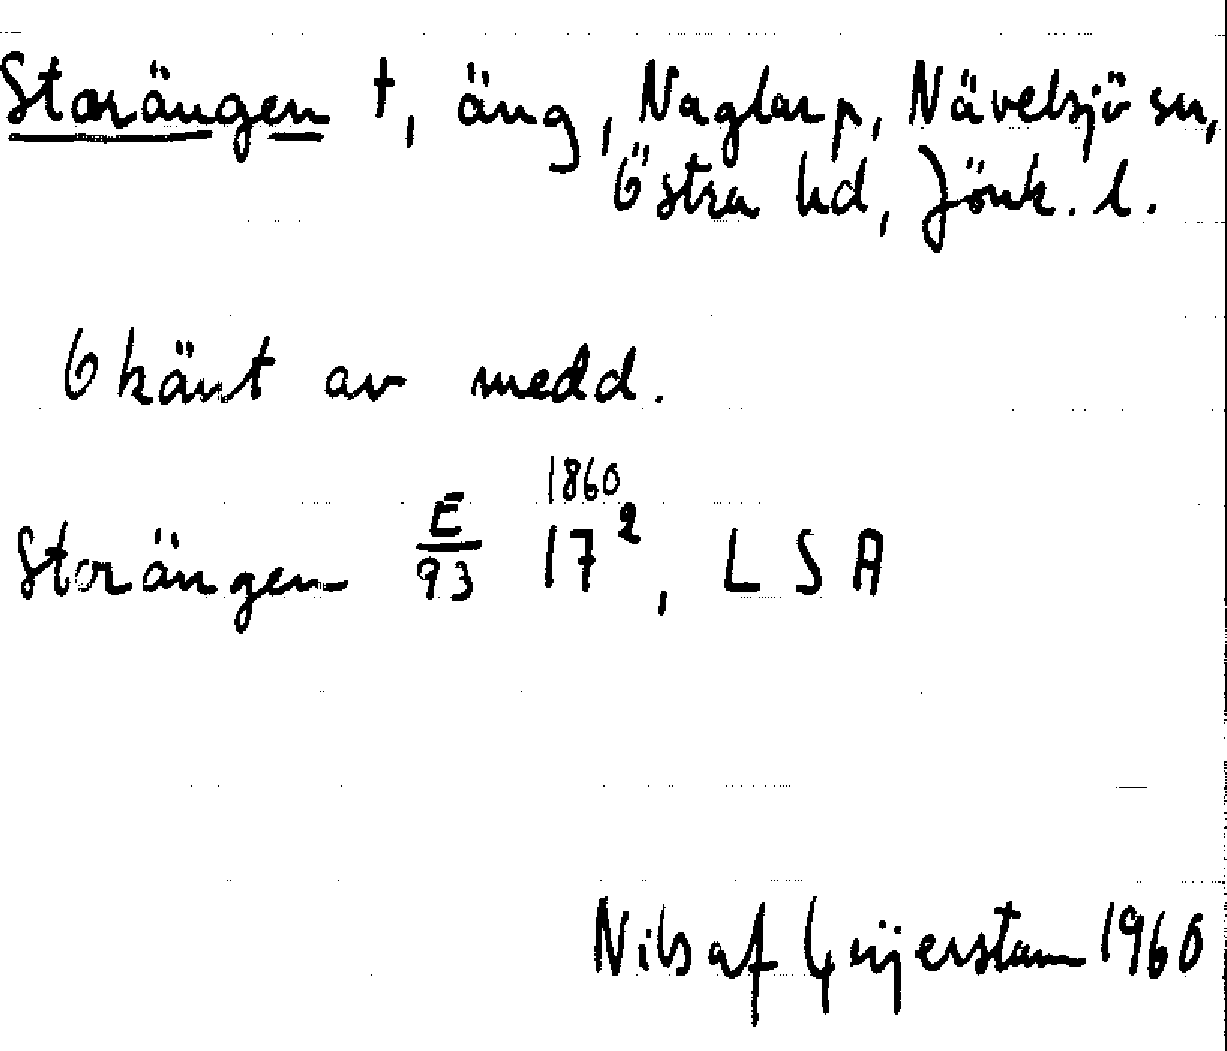 Storängen †, äng, Naglarp, Nävelsjö sn,
Östra hd, Jönk. l.
Okänt av medd.
Storängen E/93 1860 17², LSA
Nils af Geijerstam 1960